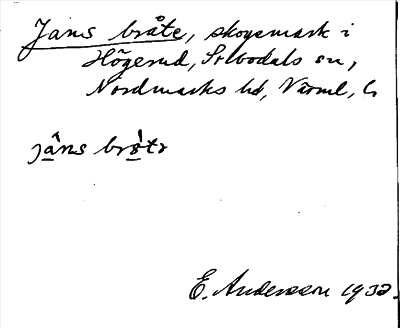 Jans bråte, skogsmark i
Högerud, Silbodals sn,
Nordmarks hd, Värml,
jâns
E. Andersson 1932.